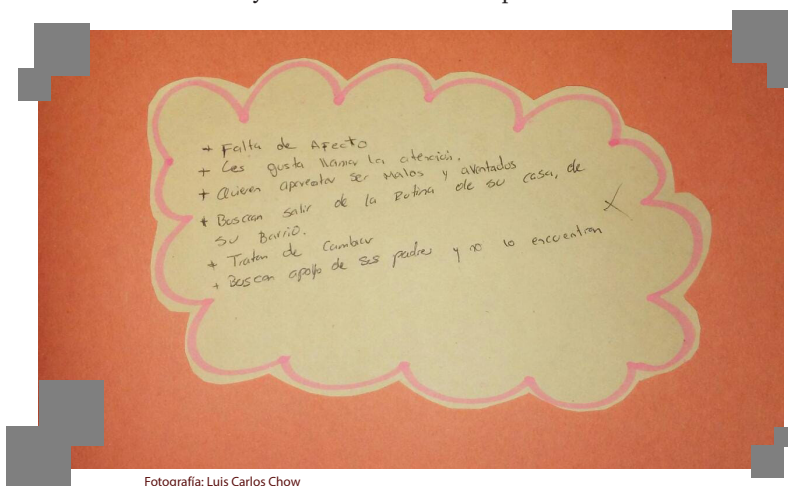 + Falta de Afecto
+ Les gusta llamar la atención.
+ Quieren aparentar ser Malos y aventados
+ Buscan salir de la Rutina de su casa, de
su Barrio.
+ Tratan de Cambiar
+ Buscan apoyo de sus padres y no lo encuentran
Fotografía: Luis Carlos Chow